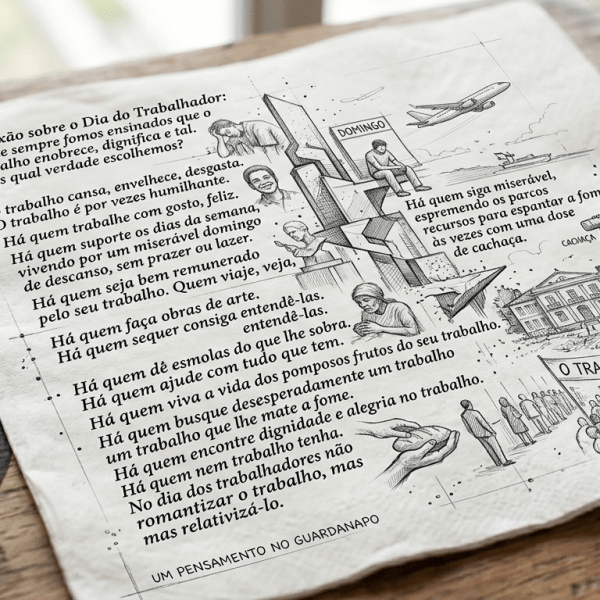 xão sobre o Dia do Trabalhador:
e sempre fomos ensinados que o
alho enobrece, dignifica e tal.
s qual verdade escolhemos?
trabalho cansa, envelhece, desgasta.
O trabalho é por vezes humilhante.
Há quem trabalhe com gosto, feliz.
Há quem suporte os dias da semana,
vivendo por um miserável domingo
de descanso, sem prazer ou lazer.
Há quem seja bem remunerado
pelo seu trabalho. Quem viaje, veja,
Há quem faça obras de arte.
Há quem sequer consiga entendê-las.
entendê-las.
Há quem dê esmolas do que lhe sobra.
Há quem ajude com tudo que tem.
Há quem viva a vida dos pomposos frutos do seu trabalho.
Há quem busque desesperadamente um trabalho
um trabalho que lhe mate a fome.
Há quem encontre dignidade e alegria no trabalho.
Há quem nem trabalho tenha.
No dia dos trabalhadores não
romantizar o trabalho, mas
mas relativizá-lo.
UM PENSAMENTO NO GUARDANAPO
DOMINGO
Há quem siga miserável,
espremendo os parcos
recursos para espantar a fom
às vezes com uma dose
de cachaça.
CACHAÇA
O TRA